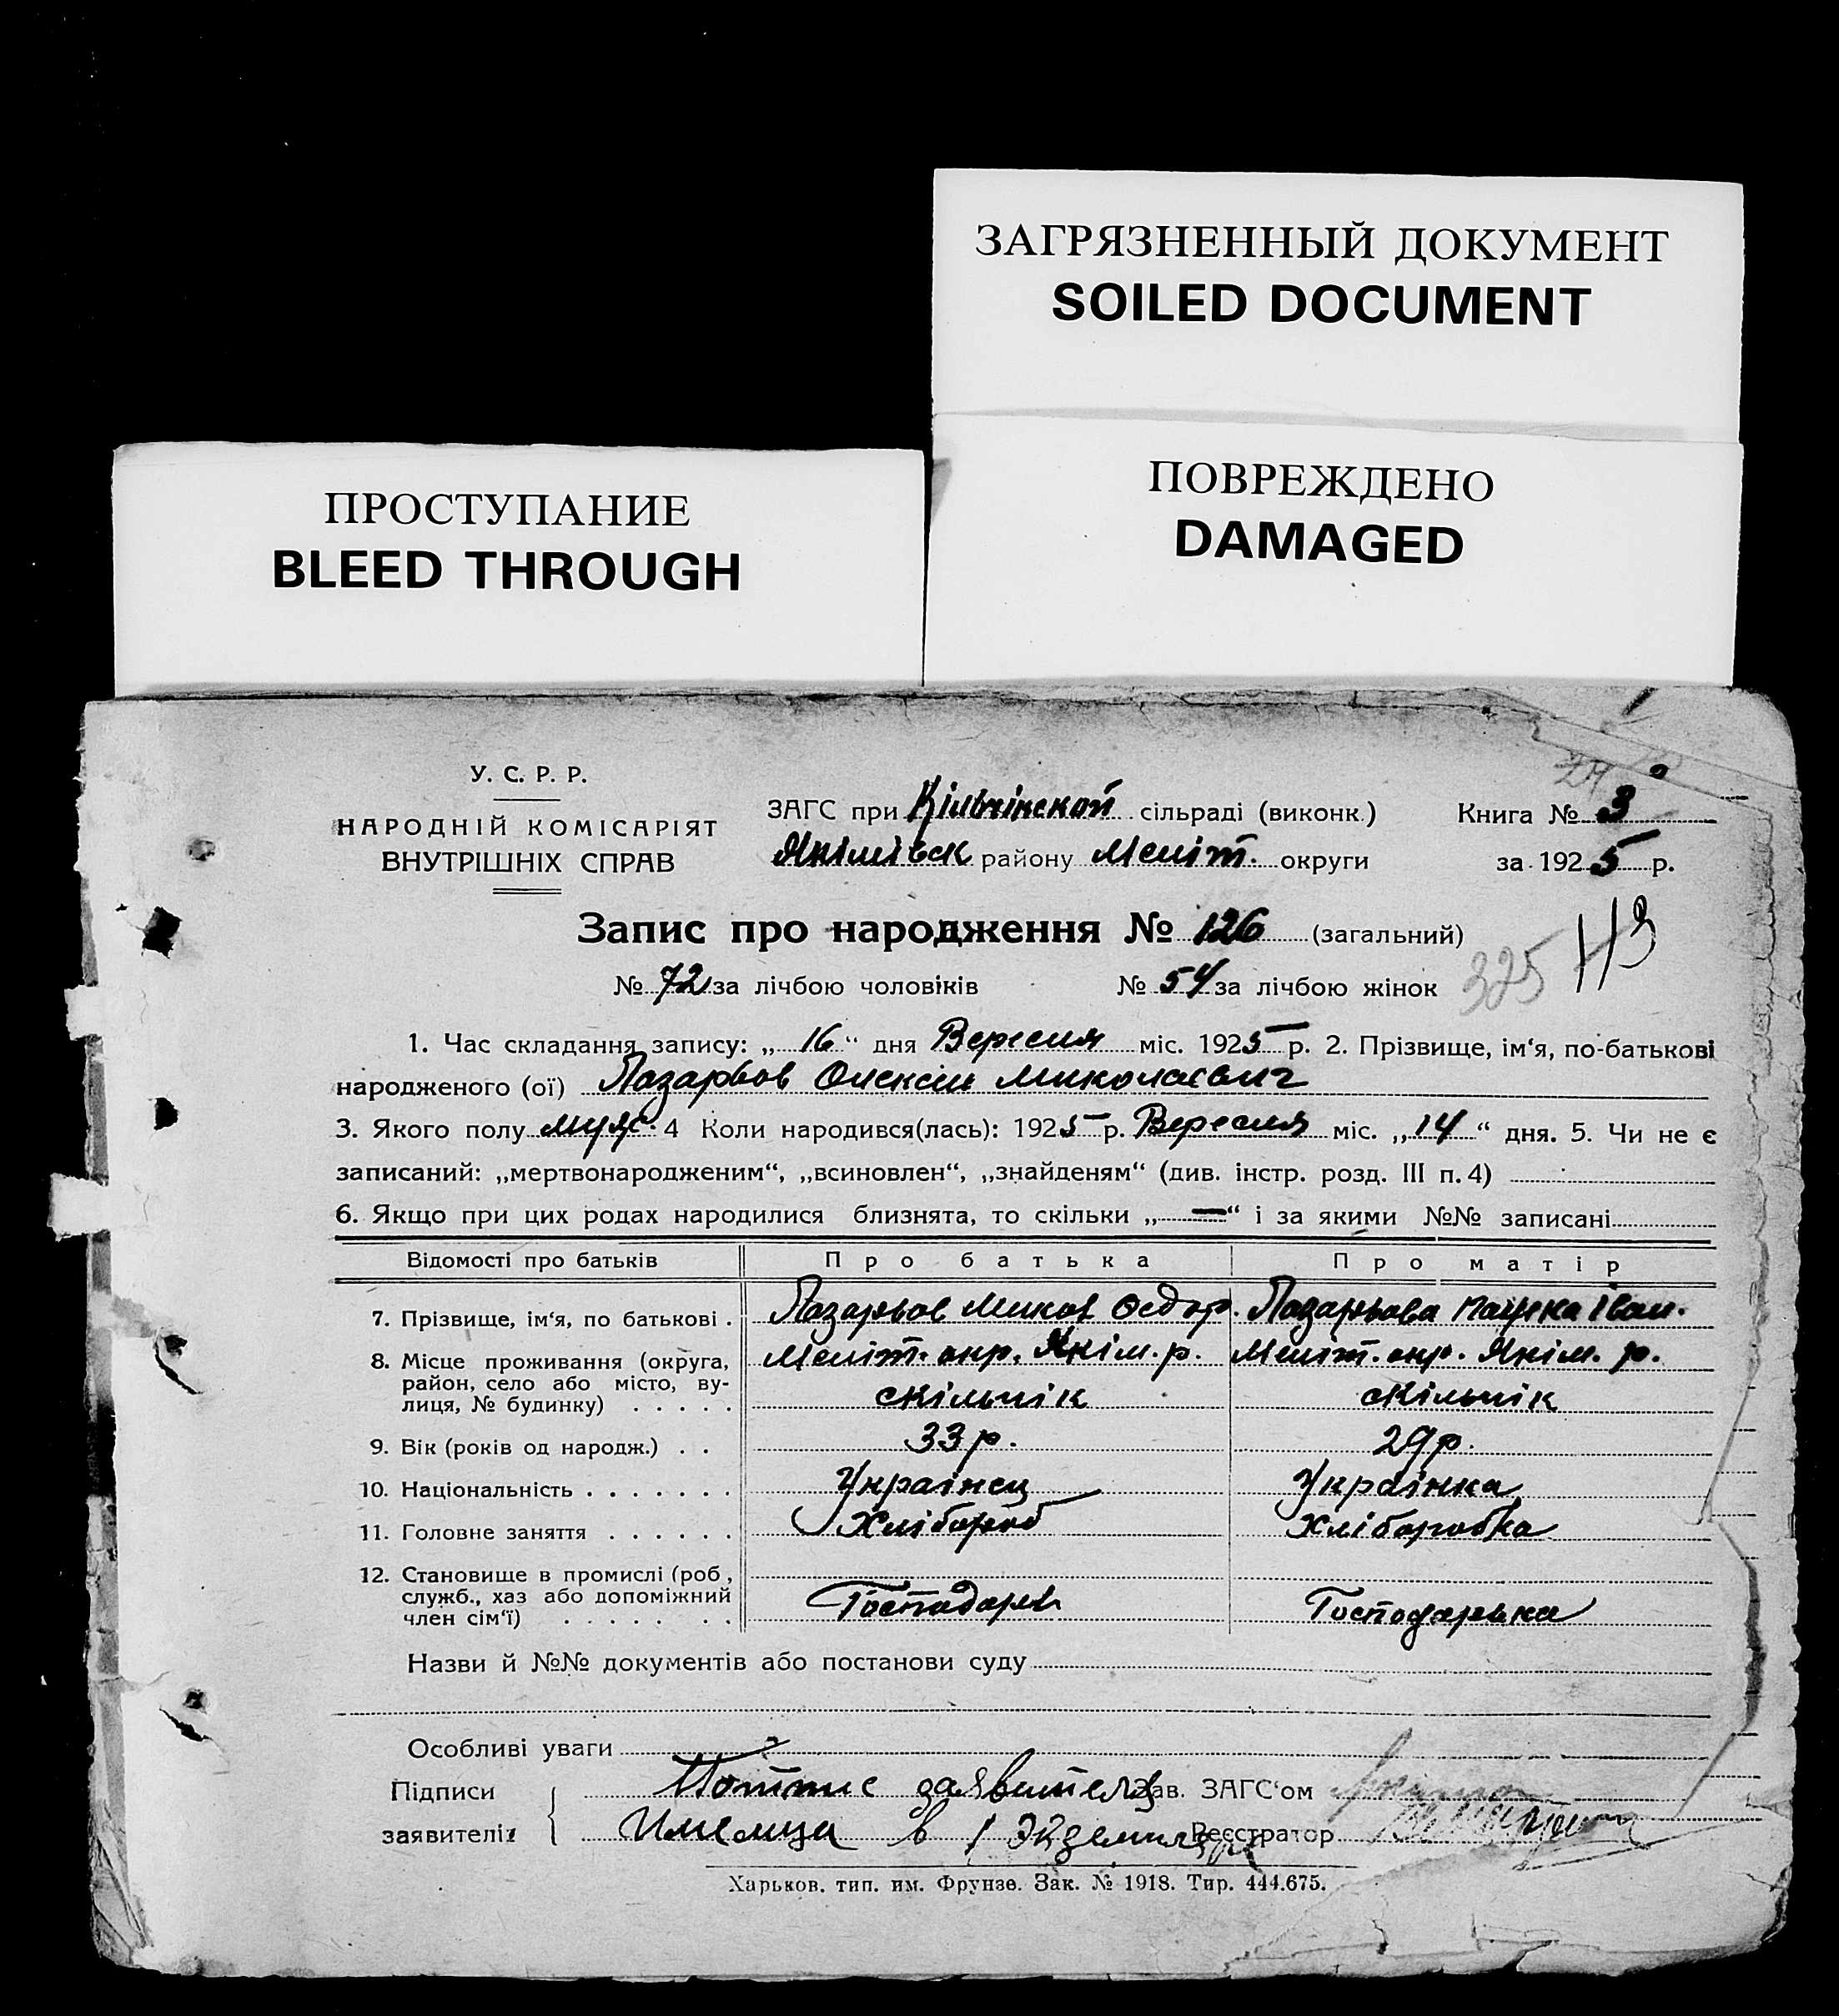 ЗАГРЯЗНЕННЫЙ ДОКУМЕНТ
SOILED DOCUMENT
ПРОСТУПАНИЕ
BLEED THROUGH
ПОВРЕЖДЕНО
DAMAGED
У. С. Р. Р.
НАРОДНІЙ КОМІСАРІЯТ
ВНУТРІШНІХ СПРАВ
ЗАГС при Кільчінской сільраді (виконк.) Книга № 3
Якімівск району Меліт. округи за 1925 р.
Запис про народження № 126 (загальний)
№ 72 за лічбою чоловіків № 54 за лічбою жінок 325
1. Час складання запису: „16“ дня Вересня міс. 1925 р. 2. Прізвище, ім‘я, по-батькові
народженого (ої) Лазарьов Олексій Миколаєвич
3. Якого полу муж. 4 Коли народився(лась): 1925 р. Вересня міс. „14“ дня. 5. Чи не є
записаний: „мертвонародженим“, „всиновлен“, „знайденям“ (див. інстр. розд. III п. 4)
6. Якщо при цих родах народилися близнята, то скільки „—“ і за якими №№ записані
Відомості про батьків Про батька Про матір
7. Прізвище, ім‘я, по батькові . Лазарьов Микол Федор. Лазарьова Іван.
8. Місце проживання (округа, район, село або місто, вулиця, № будинку) . . . . . Меліт. окр. Якім. р. Меліт. окр. Якім. р.
с Кільчік с Кільчік
9. Вік (років од народж.) . . 33 р. 29 р.
10. Національність . . . . . . . Українец Українка
11. Головне заняття . . . . . . Хлібороб Хліборобка
12. Становище в промислі (роб, служб., хаз або допоміжний член сім‘ї) . . . . . . . Господарь Господарька
Назви й №№ документів або постанови суду
Особливі уваги
Підписи заявителів { Потпис заявителя Зав. ЗАГС‘ом
Имеемца в 1 Экземпляре Реєстратор
Харьков. тип. им. Фрунзе. Зак. № 1918. Тир. 444.675.